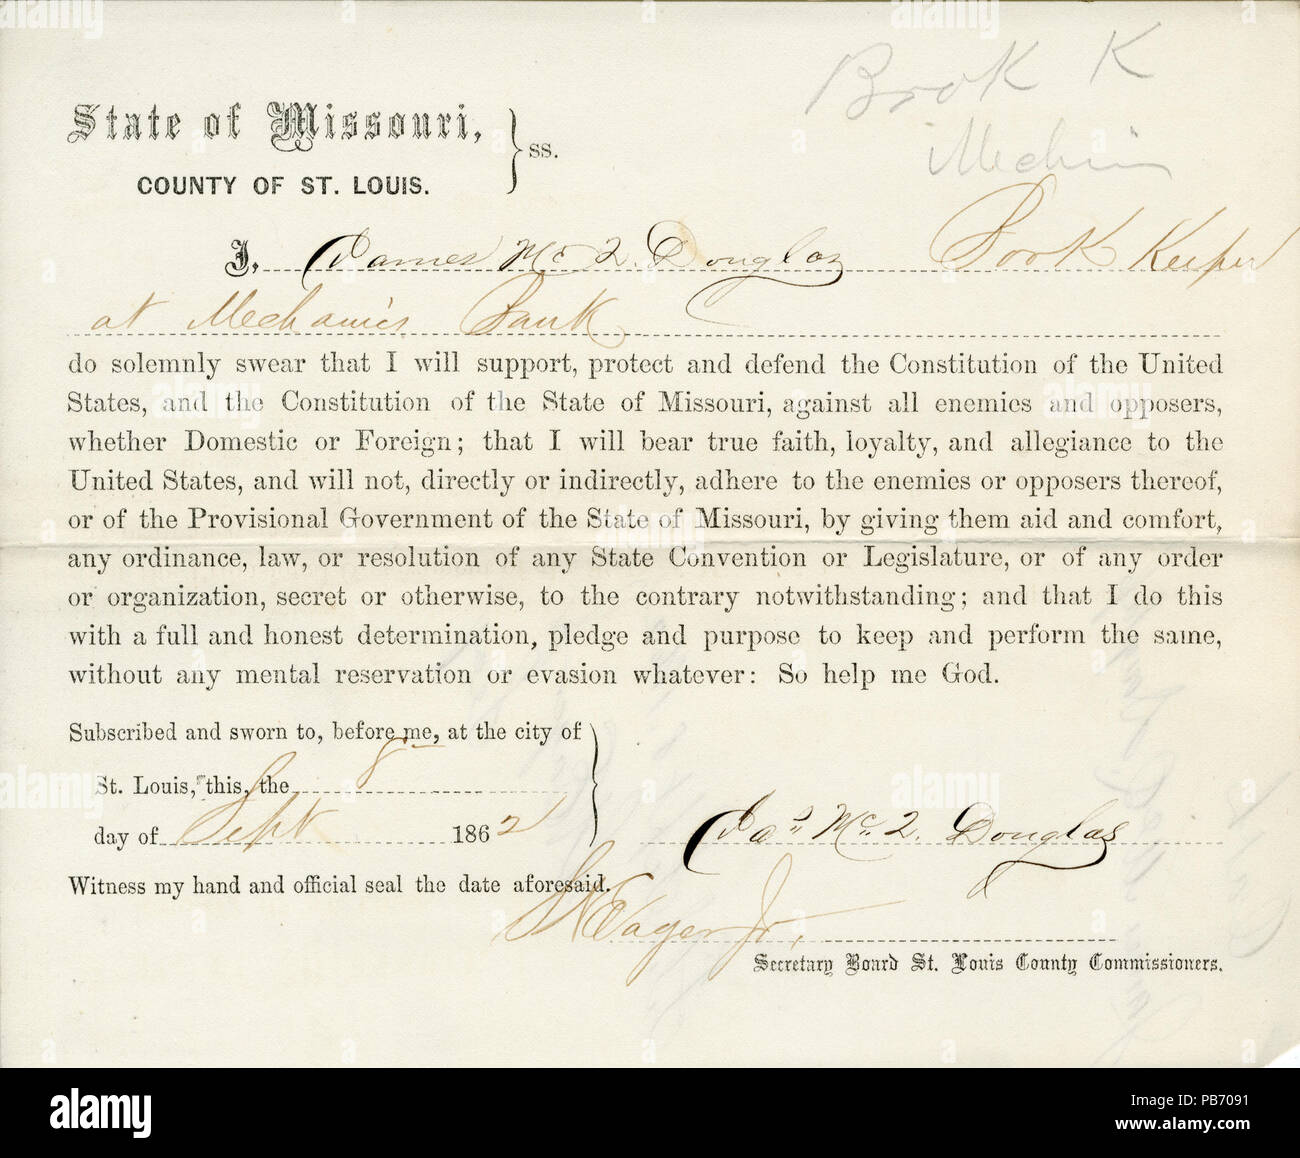 Book K
Mechanic
State of Missouri, } ss.
COUNTY OF ST. LOUIS.
I, James Mc 2. Douglas Book Keeper
at Mechanics Bank
do solemnly swear that I will support, protect and defend the Constitution of the United
States, and the Constitution of the State of Missouri, against all enemies and opposers,
whether Domestic or Foreign; that I will bear true faith, loyalty, and allegiance to the
United States, and will not, directly or indirectly, adhere to the enemies or opposers thereof,
or of the Provisional Government of the State of Missouri, by giving them aid and comfort,
any ordinance, law, or resolution of any State Convention or Legislature, or of any order
or organization, secret or otherwise, to the contrary notwithstanding; and that I do this
with a full and honest determination, pledge and purpose to keep and perform the same,
without any mental reservation or evasion whatever: So help me God.
Subscribed and sworn to, before me, at the city of
St. Louis, this, the 8
day of Sept 1862
Jas Mc 2. Douglas
Witness my hand and official seal the date aforesaid.
Eager Jr.
Secretary Board St. Louis County Commissioners.
alamy
Image ID: PB7091
www.alamy.com